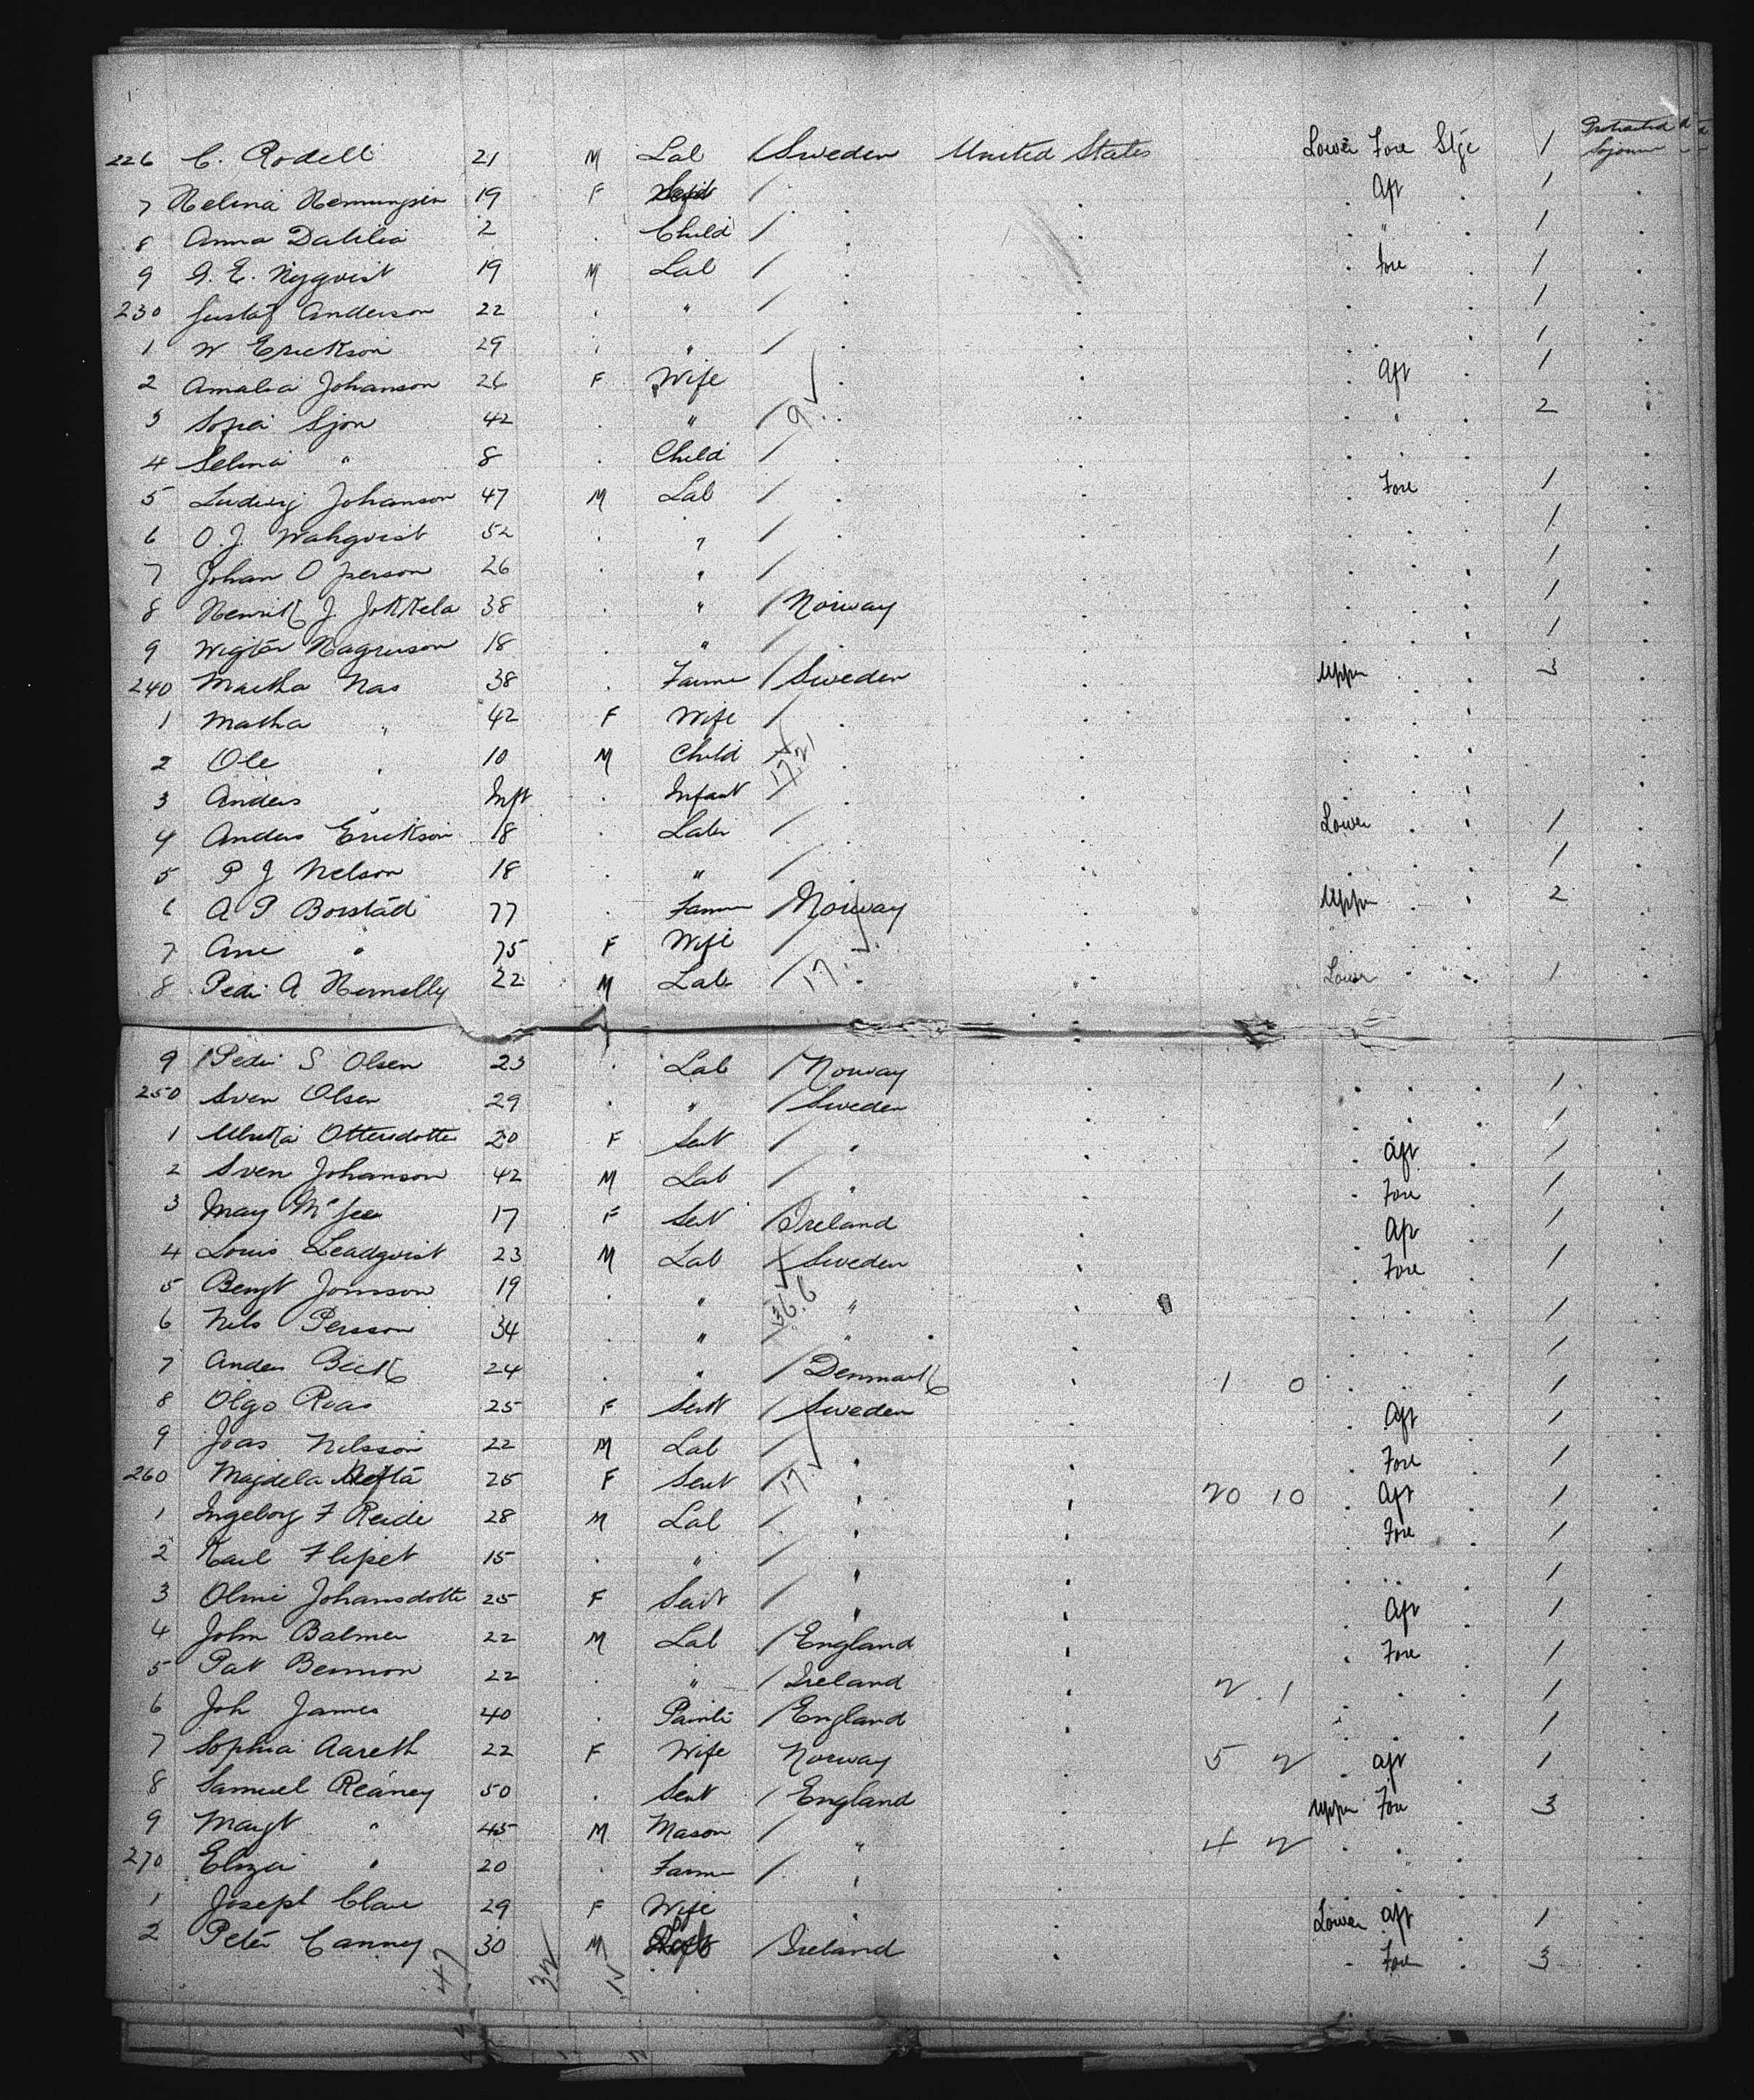 226 C. Rodell 21 M Lab / Sweden United States Lower Fore Stge 1 Protracted Sojourn
7 Helena 19 F / . . . Aft . 1 .
8 Anna Dahlia 2 . Child / . . . " . 1 .
9 G. E. Nygqvist 19 M Lab / . . . Fore . 1 .
230 Gustaf Anderson 22 . " / . . . . . 1 .
1 W Erickson 29 . " / . . . . . 1 .
2 Amalia Johanson 26 F Wife / . . . Aft . 1 .
3 Sofia Sjon 42 . " / 9 . . . . . 2 .
4 Selma " 8 . Child / . . . . . .
5 Ludwig Johanson 47 M Lab / . . . Fore . 1 .
6 O. J. Wahqvist 52 . " / . . . . . 1 .
7 Johan O person 26 . " / . . . . . 1 .
8 Henrik J. Jokkela 38 . " / Norway . . . . 1 .
9 Wigtor Magnuson 18 . " / . . . . . 1 .
240 Martha Nas 38 . Farmer / Sweden . Upper . . 3 .
1 Matha " 42 F Wife / . . . . . .
2 Ole " 10 M Child / 17.21 . . . . . .
3 Anders " Inft . Infant / . . . . . .
4 Anders Erickson 18 . Labr / . . Lower . . 1 .
5 P J Nelson 18 . " / . . . . . 1 .
6 A P Borstad 77 . Farmer / Norway . Upper . . 2 .
7 Ane " 75 F Wife / . . . . . .
8 Peder A 22 M Lab / 17 . . Lower . . 1 .
9 Peder S Olsen 23 . Lab / Norway . . . . 1 .
250 Sven Olsen 29 . " / Sweden . . . . 1 .
1 Ulrika Ottersdotter 20 F Sevt / . . . Aft . 1 .
2 Sven Johanson 42 M Lab / " . . Fore . 1 .
3 May McGee 17 F Sevt / Ireland . . Aft . 1 .
4 Louis Leadqvist 23 M Lab / Sweden . . Fore . 1 .
5 Bengt Jonsson 19 . " 36.6 " . . . . 1 .
6 Nils Persson 34 . " / " . . . . 1 .
7 Anders Beck 24 . " / Denmark . 1 0 . . . 1 .
8 Olgo Roas 25 F Sevt / Sweden . . Aft . 1 .
9 Joas Nilsson 22 M Lab / . . . Fore . 1 .
260 Majdela 25 F Sevt / 17 . . 20 10 . Aft . 1 .
1 Ingeborg F Reide 28 M Lab / . . . Fore . 1 .
2 Karl Flipet 15 . " / . . . . . 1 .
3 Olme Johansdotte 25 F Sevt / . . . Aft . 1 .
4 John Balmer 22 M Lab / England . . Fore . 1 .
5 Pat Bennon 22 . " / Ireland . 2 . 1 . . . 1 .
6 Joh James 40 . Painter / England . . . . 1 .
7 Sophia Aareth 22 F Wife Norway . 5 2 . Aft . 1 .
8 Samuel Reaney 50 . Sevt / England . Upper Fore . 3 .
9 Margt " 45 M Mason / " . 4 2 . . . .
270 Eliza " 20 . Farmer / . . . . . .
1 Joseph Clare 29 F Wife . . Lower Aft . 1 .
2 Peter Canney 30 M / Ireland . . Fore . 3 .
47 32 15